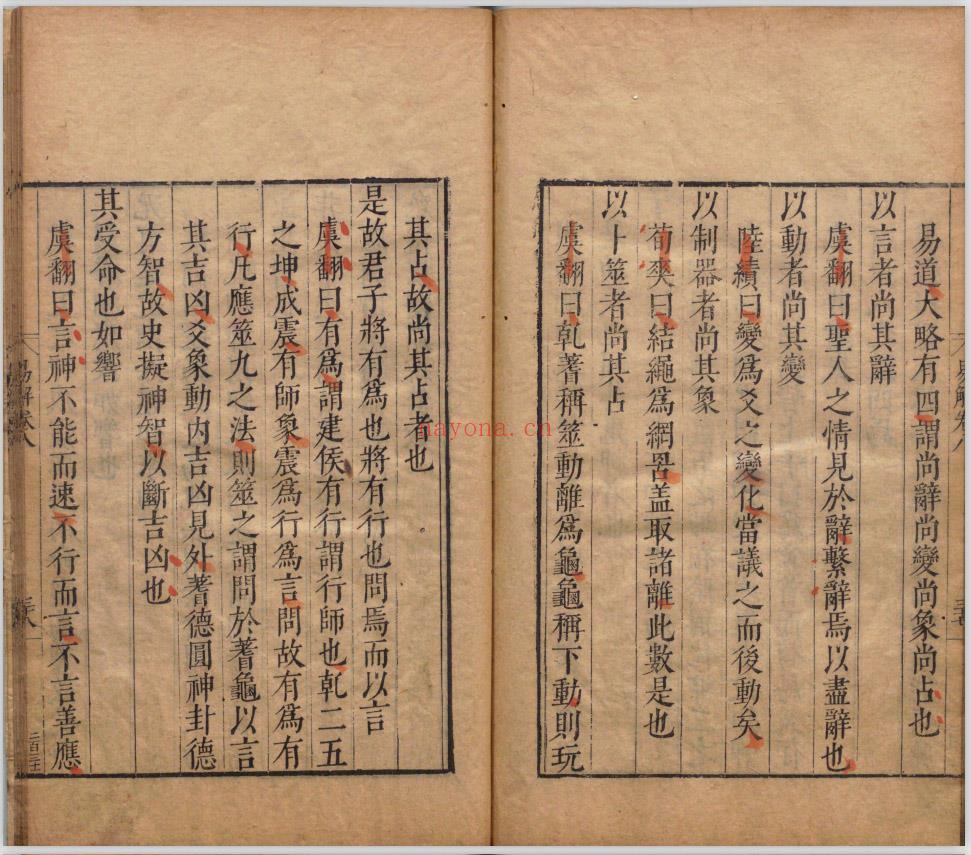 易道大略有四謂尚辭尚變尚象尚占也
以言者尚其辭
虞翻曰聖人之情見於辭繫辭焉以盡辭也
以動者尚其變
陸績曰變爲爻之變化當議之而後動矣
以制器者尚其象
荀爽曰結繩爲網罟盖取諸離此數是也
以卜筮者尚其占
虞翻曰乹蓍稱筮動離爲龜龜稱下動則玩
其占故尚其占者也
是故君子將有爲也將有行也問焉而以言
虞翻曰有爲謂建侯有行謂行師也乹二五
之坤成震有師象震爲行爲言問故有爲有
行凡應筮九之法則筮之謂問於蓍龜以言
其吉凶爻象動内吉凶見外蓍德圓神卦德
方智故史擬神智以斷吉凶也
其受命也如響
虞翻曰言神不能而速不行而言不言善應
易解卷八
nayona.cn